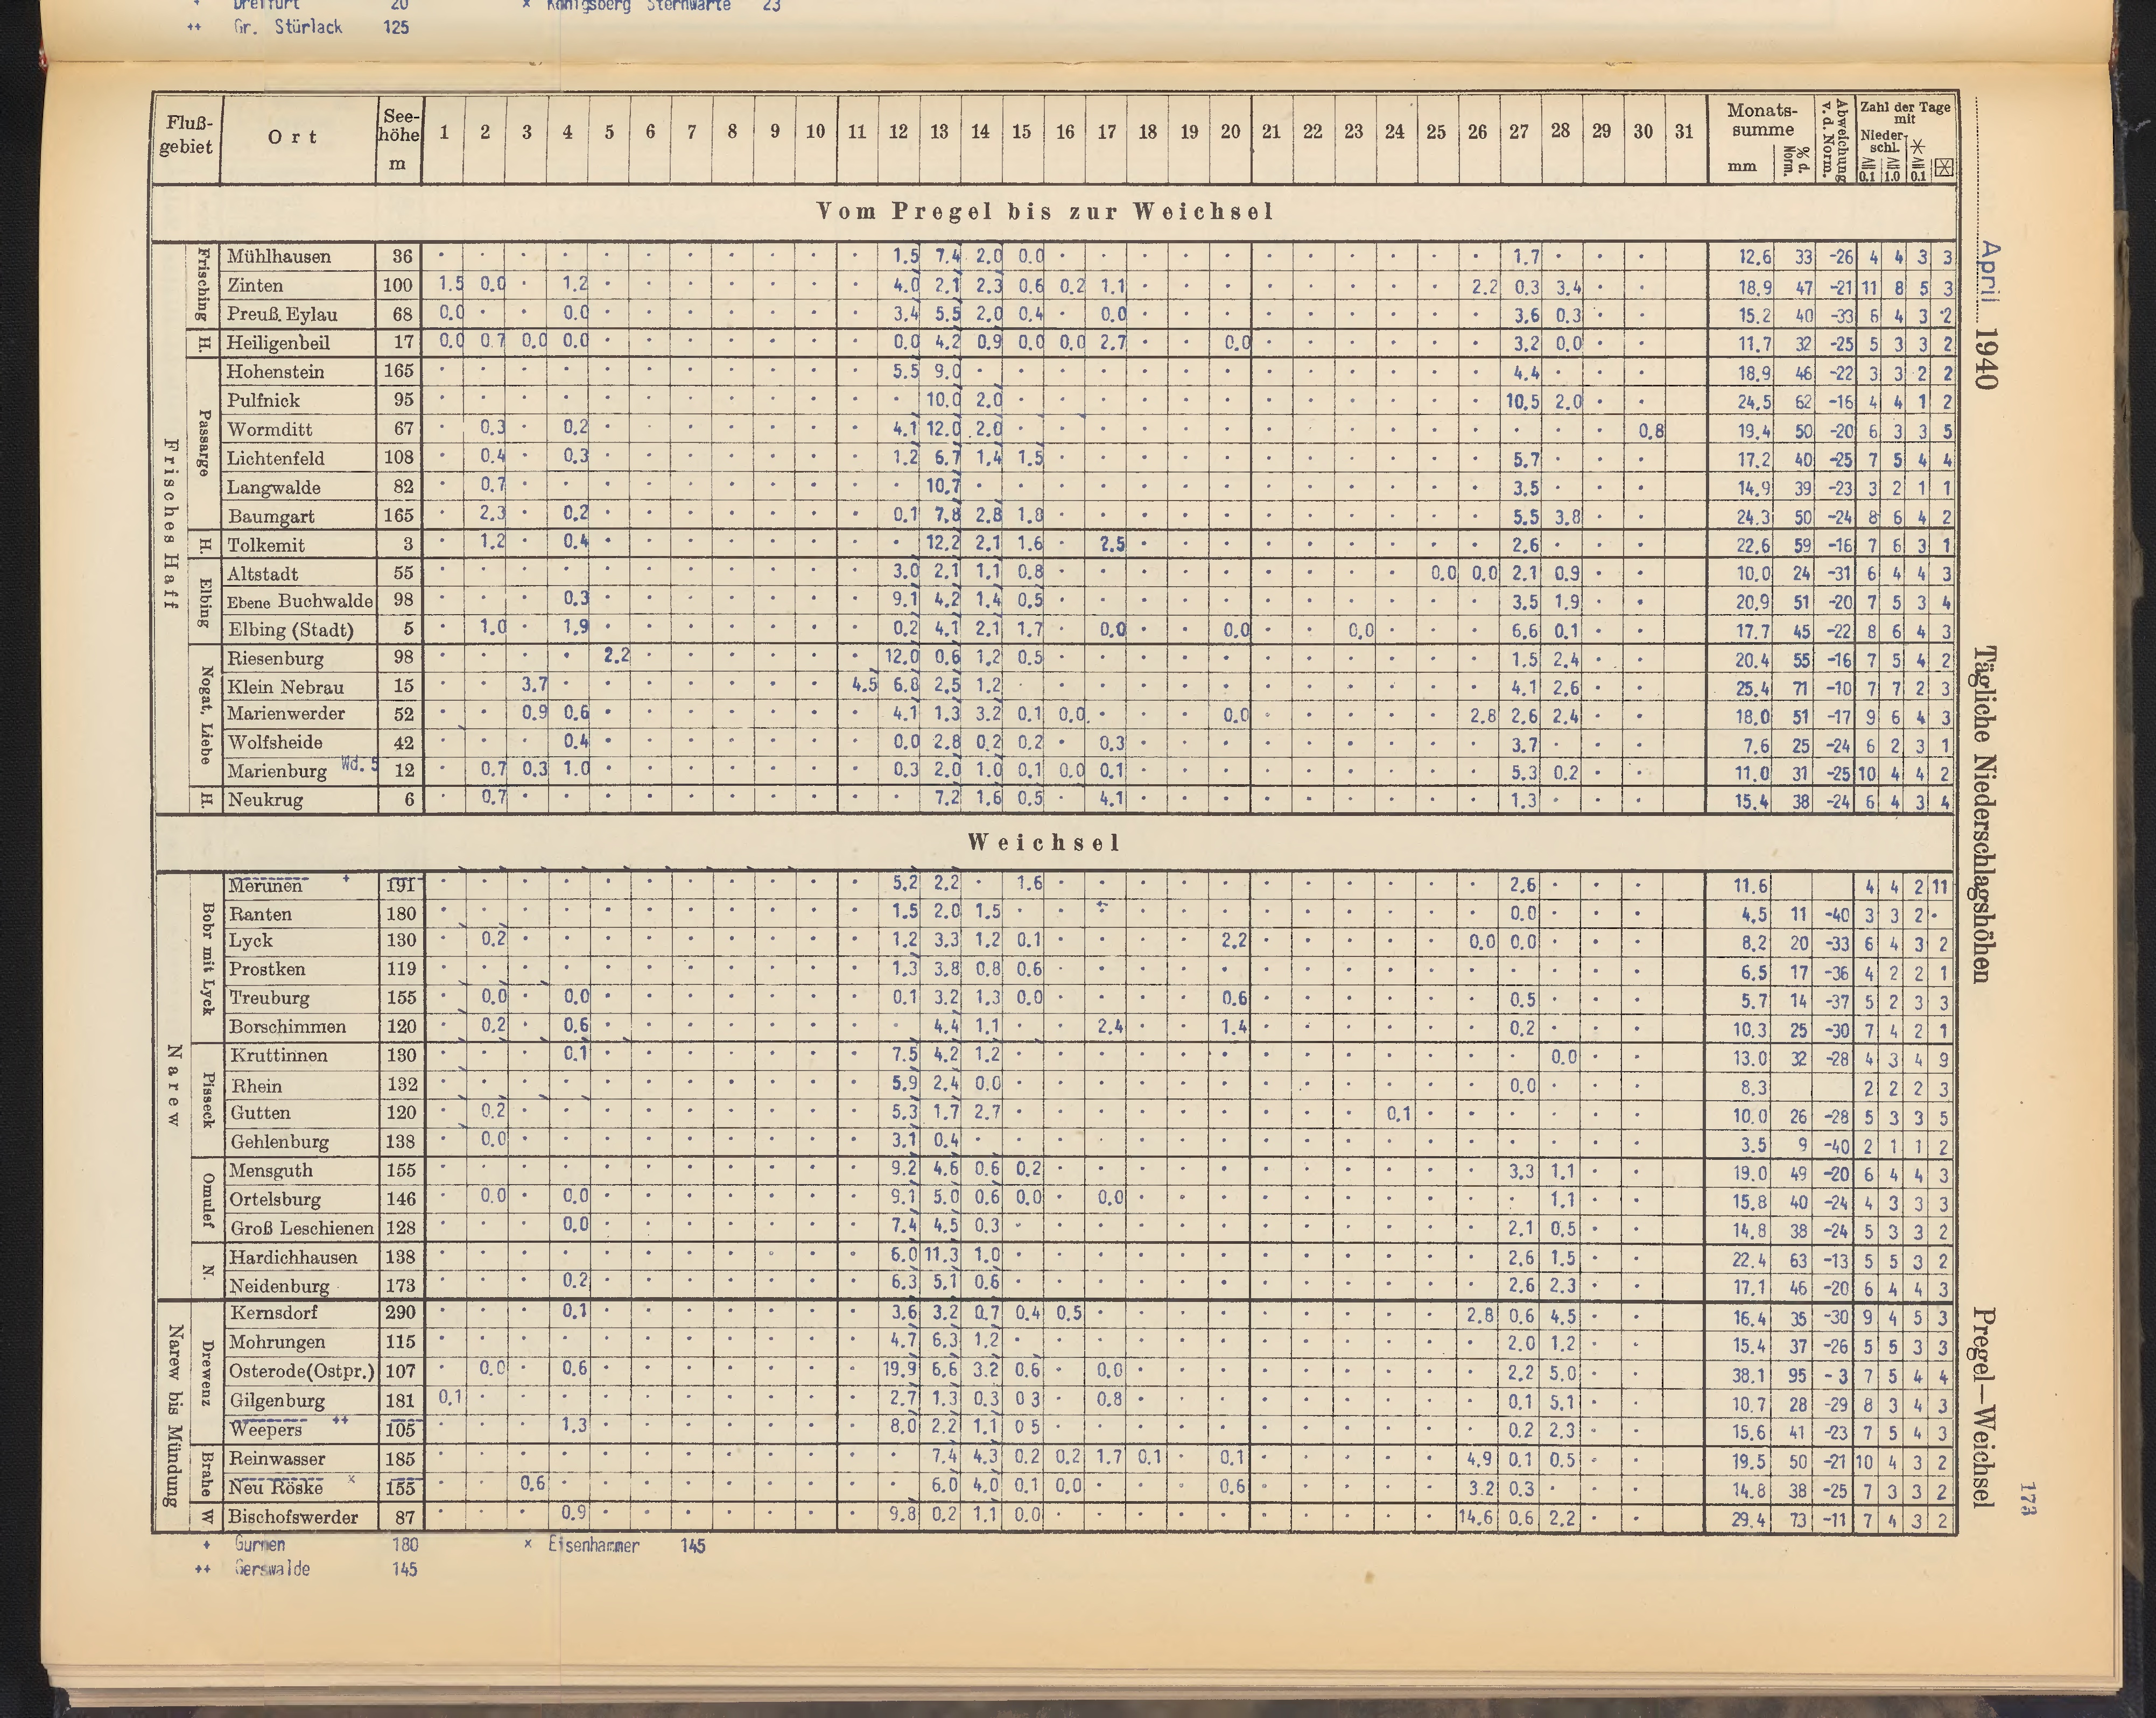 + Dreifurt 20 × Königsberg Sternwarte 23
++ Gr. Stürlack 125
April 1940
Tägliche Niederschlagshöhen
Pregel—Weichsel
173
Fluß-gebiet Ort See-höhe m 1 2 3 4 5 6 7 8 9 10 11 12 13 14 15 16 17 18 19 20 21 22 23 24 25 26 27 28 29 30 31 Monats-summe mm % d. Norm. Abweichung v. d. Norm. Zahl der Tage mit Nieder-schl. ≧ 0.1 ≧ 1.0 ≧ 0.1
Vom Pregel bis zur Weichsel
Frisches Haff
Frisching
Mühlhausen 36 · · · · · · · · · · · 1.5 7.4 2.0 0.0 · · · · · · · · · · · 1.7 · · · 12.6 33 -26 4 4 3 3
Zinten 100 1.5 0.0 · 1.2 · · · · · · · 4.0 2.1 2.3 0.6 0.2 1.1 · · · · · · · · 2.2 0.3 3.4 · · 18.9 47 -21 11 8 5 3
Preuß. Eylau 68 0.0 · · 0.0 · · · · · · · 3.4 5.5 2.0 0.4 · 0.0 · · · · · · · · · 3.6 0.3 · · 15.2 40 -33 6 4 3 2
H.
Heiligenbeil 17 0.0 0.7 0.0 0.0 · · · · · · · 0.0 4.2 0.9 0.0 0.0 2.7 · · 0.0 · · · · · · 3.2 0.0 · · 11.7 32 -25 5 3 3 2
Passarge
Hohenstein 165 · · · · · · · · · · · 5.5 9.0 · · · · · · · · · · · · · 4.4 · · · 18.9 46 -22 3 3 2 2
Pulfnick 95 · · · · · · · · · · · · 10.0 2.0 · · · · · · · · · · · · 10.5 2.0 · · 24.5 62 -16 4 4 1 2
Wormditt 67 · 0.3 · 0.2 · · · · · · · 4.1 12.0 2.0 · · · · · · · · · · · · · · · 0.8 19.4 50 -20 6 3 3 5
Lichtenfeld 108 · 0.4 · 0.3 · · · · · · · 1.2 6.7 1.4 1.5 · · · · · · · · · · · 5.7 · · · 17.2 40 -25 7 5 4 4
Langwalde 82 · 0.7 · · · · · · · · · · 10.7 · · · · · · · · · · · · · 3.5 · · · 14.9 39 -23 3 2 1 1
Baumgart 165 · 2.3 · 0.2 · · · · · · · 0.1 7.8 2.8 1.8 · · · · · · · · · · · 5.5 3.8 · · 24.3 50 -24 8 6 4 2
H.
Tolkemit 3 · 1.2 · 0.4 · · · · · · · · 12.2 2.1 1.6 · 2.5 · · · · · · · · · 2.6 · · · 22.6 59 -16 7 6 3 1
Elbing
Altstadt 55 · · · · · · · · · · · 3.0 2.1 1.1 0.8 · · · · · · · · · 0.0 0.0 2.1 0.9 · · 10.0 24 -31 6 4 4 3
Ebene Buchwalde 98 · · · 0.3 · · · · · · · 9.1 4.2 1.4 0.5 · · · · · · · · · · · 3.5 1.9 · · 20.9 51 -20 7 5 3 4
Elbing (Stadt) 5 · 1.0 · 1.9 · · · · · · · 0.2 4.1 2.1 1.7 · 0.0 · · 0.0 · · 0.0 · · · 6.6 0.1 · · 17.7 45 -22 8 6 4 3
Nogat, Liebe
Riesenburg 98 · · · · 2.2 · · · · · · 12.0 0.6 1.2 0.5 · · · · · · · · · · · 1.5 2.4 · · 20.4 55 -16 7 5 4 2
Klein Nebrau 15 · · 3.7 · · · · · · · 4.5 6.8 2.5 1.2 · · · · · · · · · · · · 4.1 2.6 · · 25.4 71 -10 7 7 2 3
Marienwerder 52 · · 0.9 0.6 · · · · · · · 4.1 1.3 3.2 0.1 0.0 · · · 0.0 · · · · · 2.8 2.6 2.4 · · 18.0 51 -17 9 6 4 3
Wolfsheide 42 · · · 0.4 · · · · · · · 0.0 2.8 0.2 0.2 · 0.3 · · · · · · · · · 3.7 · · · 7.6 25 -24 6 2 3 1
Marienburg Wd. 5 12 · 0.7 0.3 1.0 · · · · · · · 0.3 2.0 1.0 0.1 0.0 0.1 · · · · · · · · · 5.3 0.2 · · 11.0 31 -25 10 4 4 2
H.
Neukrug 6 · 0.7 · · · · · · · · · · 7.2 1.6 0.5 · 4.1 · · · · · · · · · 1.3 · · · 15.4 38 -24 6 4 3 4
Weichsel
Narew
Bobr mit Lyck
Merunen + 191 · · · · · · · · · · · 5.2 2.2 · 1.6 · · · · · · · · · · · 2.6 · · · 11.6 4 4 2 11
Ranten 180 · · · · · · · · · · · 1.5 2.0 1.5 · · · · · · · · · · · · 0.0 · · · 4.5 11 -40 3 3 2 ·
Lyck 130 · 0.2 · · · · · · · · · 1.2 3.3 1.2 0.1 · · · · 2.2 · · · · · 0.0 0.0 · · · 8.2 20 -33 6 4 3 2
Prostken 119 · · · · · · · · · · · 1.3 3.8 0.8 0.6 · · · · · · · · · · · · · · · 6.5 17 -36 4 2 2 1
Treuburg 155 · 0.0 · 0.0 · · · · · · · 0.1 3.2 1.3 0.0 · · · · 0.6 · · · · · · 0.5 · · · 5.7 14 -37 5 2 3 3
Borschimmen 120 · 0.2 · 0.6 · · · · · · · · 4.4 1.1 · · 2.4 · · 1.4 · · · · · · 0.2 · · · 10.3 25 -30 7 4 2 1
Pisseck
Kruttinnen 130 · · · 0.1 · · · · · · · 7.5 4.2 1.2 · · · · · · · · · · · · · 0.0 · · 13.0 32 -28 4 3 4 9
Rhein 132 · · · · · · · · · · · 5.9 2.4 0.0 · · · · · · · · · · · · 0.0 · · · 8.3 2 2 2 3
Gutten 120 · 0.2 · · · · · · · · · 5.3 1.7 2.7 · · · · · · · · · 0.1 · · · · · · 10.0 26 -28 5 3 3 5
Gehlenburg 138 · 0.0 · · · · · · · · · 3.1 0.4 · · · · · · · · · · · · · · · · · 3.5 9 -40 2 1 1 2
Omulef
Mensguth 155 · · · · · · · · · · · 9.2 4.6 0.6 0.2 · · · · · · · · · · · 3.3 1.1 · · 19.0 49 -20 6 4 4 3
Ortelsburg 146 · 0.0 · 0.0 · · · · · · · 9.1 5.0 0.6 0.0 · 0.0 · · · · · · · · · · 1.1 · · 15.8 40 -24 4 3 3 3
Groß Leschienen 128 · · · 0.0 · · · · · · · 7.4 4.5 0.3 · · · · · · · · · · · · 2.1 0.5 · · 14.8 38 -24 5 3 3 2
N.
Hardichhausen 138 · · · · · · · · · · · 6.0 11.3 1.0 · · · · · · · · · · · · 2.6 1.5 · · 22.4 63 -13 5 5 3 2
Neidenburg 173 · · · 0.2 · · · · · · · 6.3 5.1 0.6 · · · · · · · · · · · · 2.6 2.3 · · 17.1 46 -20 6 4 4 3
Narew bis Mündung
Drewenz
Kernsdorf 290 · · · 0.1 · · · · · · · 3.6 3.2 0.7 0.4 0.5 · · · · · · · · · 2.8 0.6 4.5 · · 16.4 35 -30 9 4 5 3
Mohrungen 115 · · · · · · · · · · · 4.7 6.3 1.2 · · · · · · · · · · · · 2.0 1.2 · · 15.4 37 -26 5 5 3 3
Osterode(Ostpr.) 107 · 0.0 · 0.6 · · · · · · · 19.9 6.6 3.2 0.6 · 0.0 · · · · · · · · · 2.2 5.0 · · 38.1 95 -3 7 5 4 4
Gilgenburg 181 0.1 · · · · · · · · · · 2.7 1.3 0.3 0 3 · 0.8 · · · · · · · · · 0.1 5.1 · · 10.7 28 -29 8 3 4 3
Weepers ++ 105 · · · 1.3 · · · · · · · 8.0 2.2 1.1 0 5 · · · · · · · · · · · 0.2 2.3 · · 15.6 41 -23 7 5 4 3
Brahe
Reinwasser 185 · · · · · · · · · · · · 7.4 4.3 0.2 0.2 1.7 0.1 · 0.1 · · · · · 4.9 0.1 0.5 · · 19.5 50 -21 10 4 3 2
Neu Röske × 155 · · 0.6 · · · · · · · · · 6.0 4.0 0.1 0.0 · · · 0.6 · · · · · 3.2 0.3 · · · 14.8 38 -25 7 3 3 2
W
Bischofswerder 87 · · · 0.9 · · · · · · · 9.8 0.2 1.1 0.0 · · · · · · · · · · 14.6 0.6 2.2 · · 29.4 73 -11 7 4 3 2
+ Gurnen 180 × Eisenhammer 145
++ Gerswalde 145